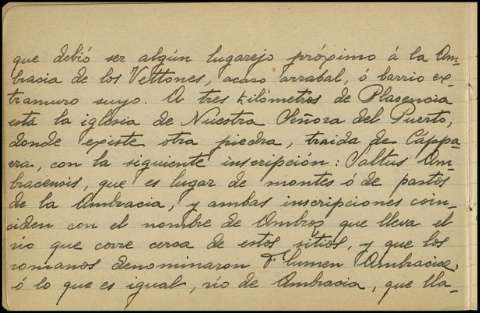 que debió ser algún lugarejo próximo á la Am-
bracia de los Vettones, acaso arrabal, ó barrio ex-
tramuro suyo. A tres kilómetros de Plasencia
está la iglesia de Nuestra Señora del Puerto,
donde existe otra piedra, traida de Cáppa
era, con la siguiente inscripción: Saltus Am-
bracensis, que es lugar de montes ó de pastos
de la Ambracia, y ambas inscripciones coin-
ciden con el nombre de Ambroz que lleva el
rio que corre cerca de estos sitios, y que los
romanos denominaron Flumen Ambraciæ,
ó lo que es igual, rio de Ambracia, que lla-